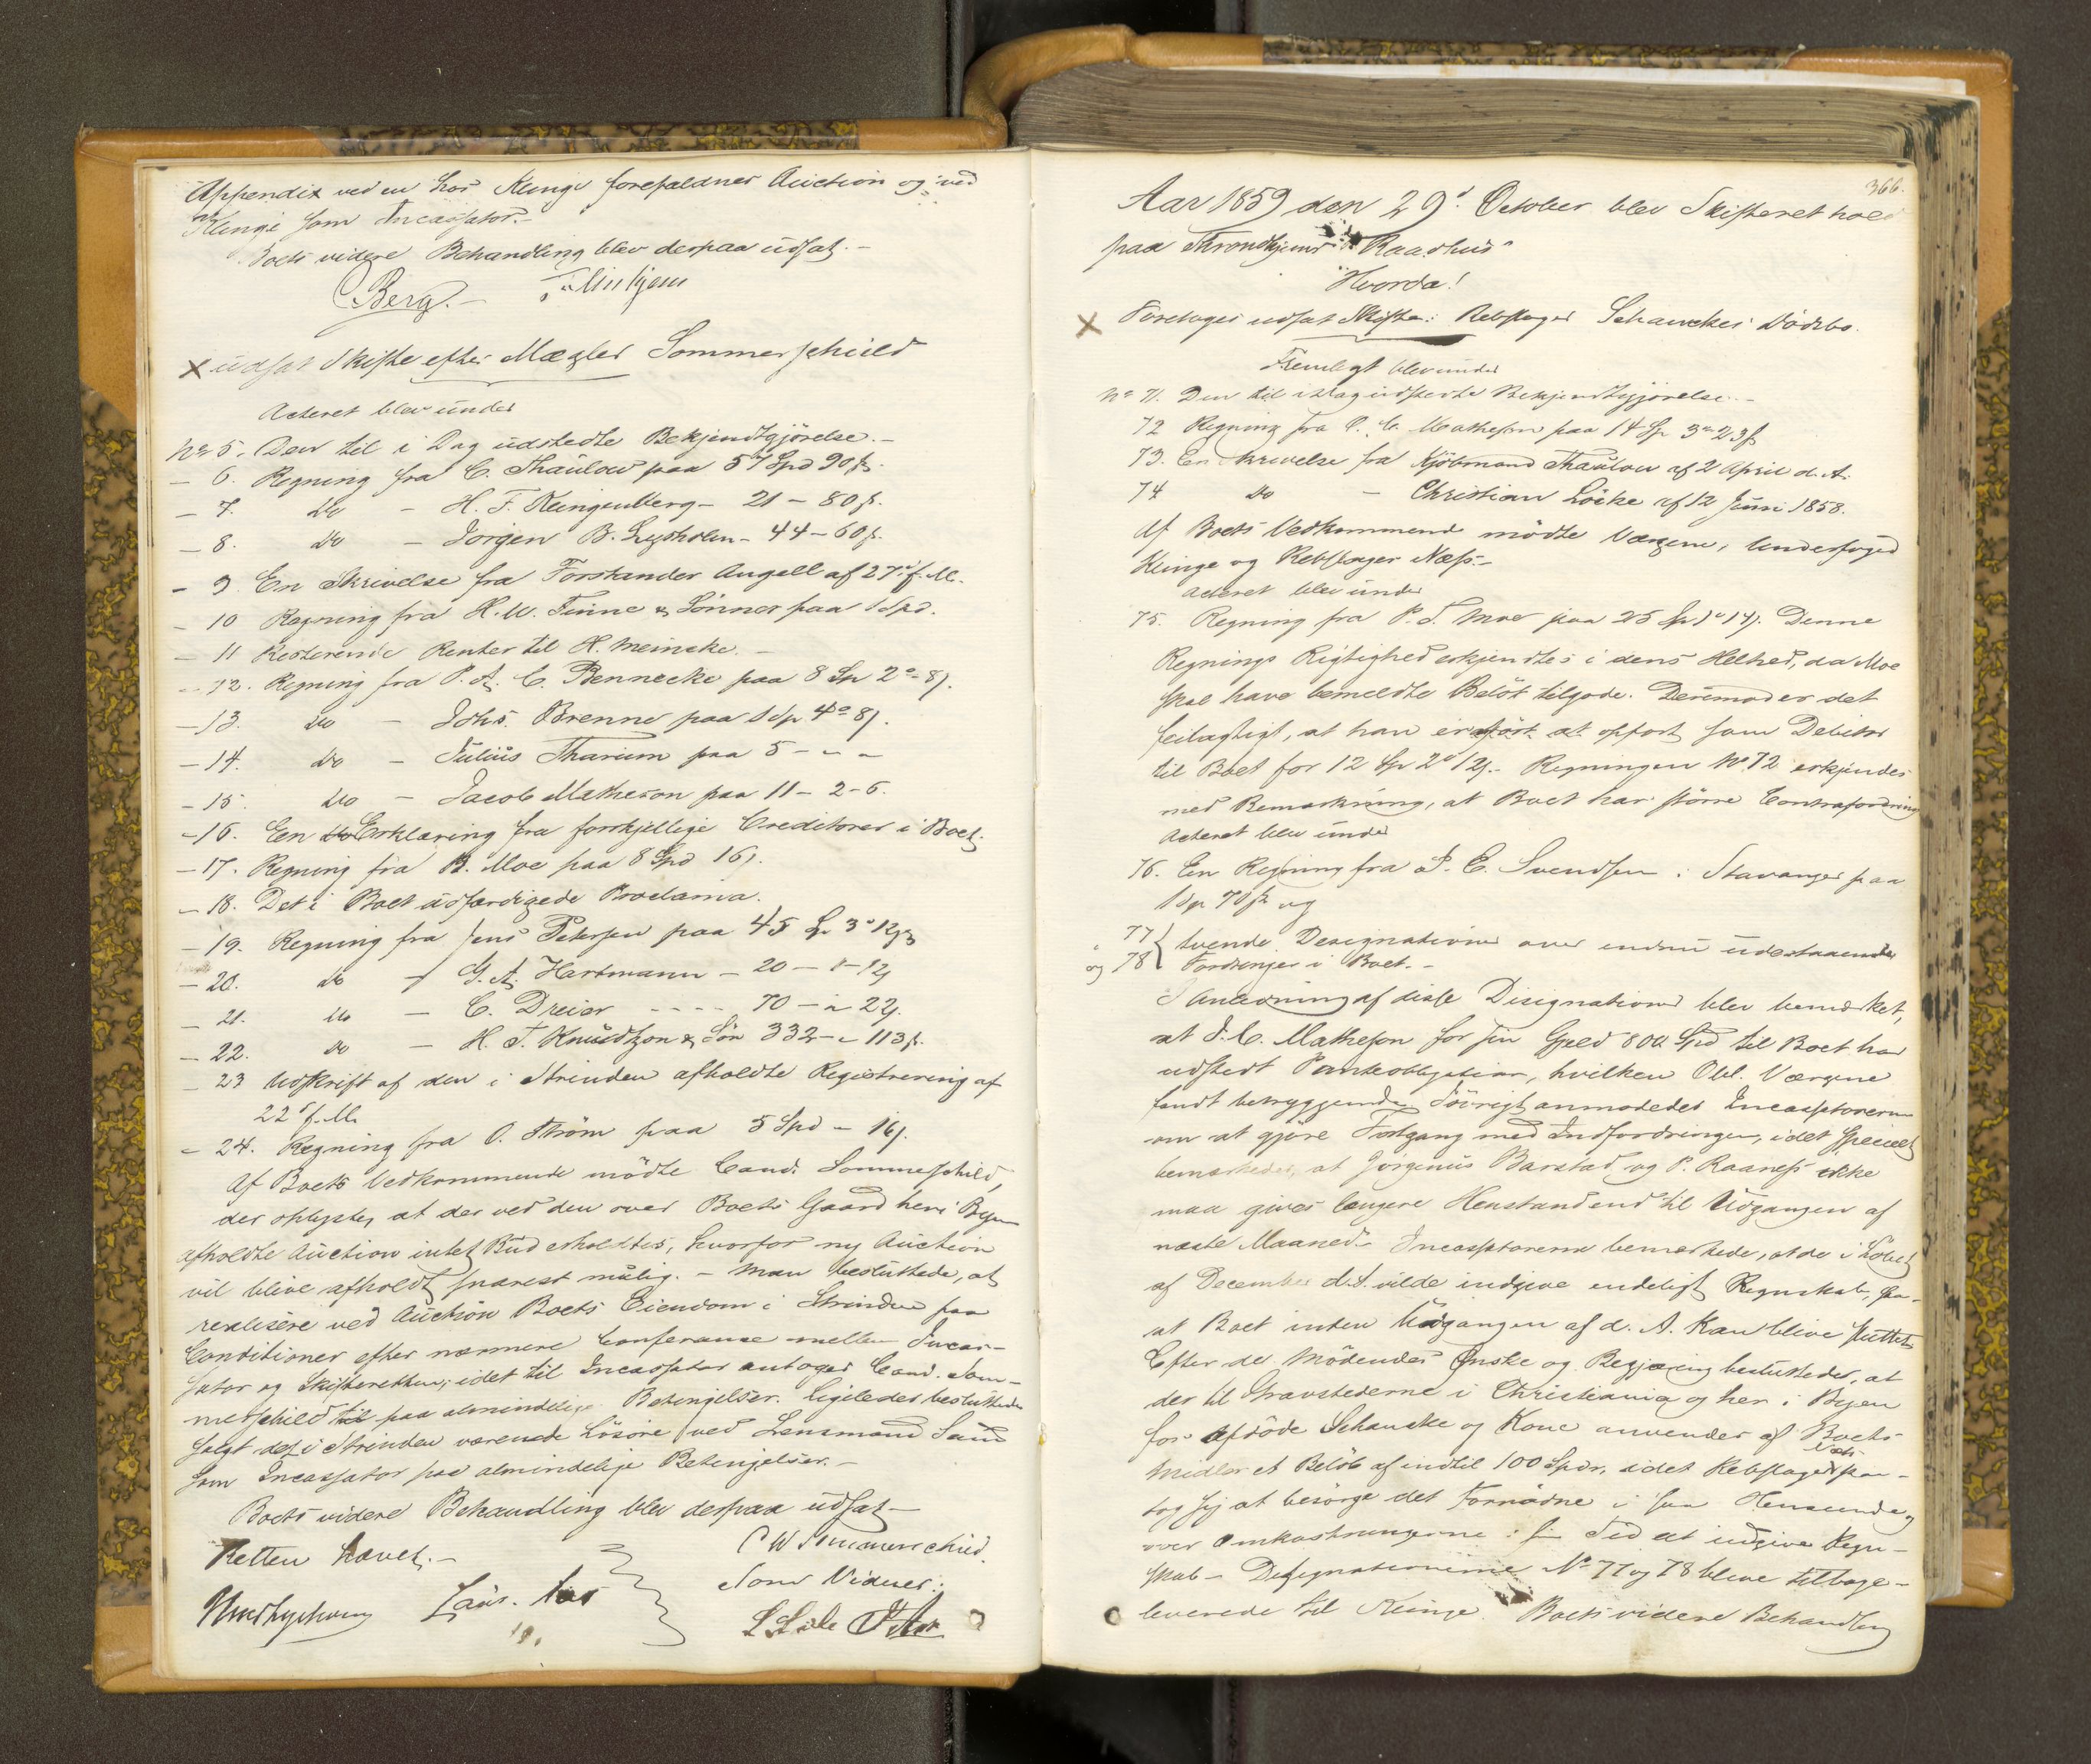 Appendix ved en hos Klinge forefaldner Auction og ved
Klinge som Incassator.-
Boets videre Behandling blev derpaa udsat.-
Berg.-
× udsat Skifte efter Mægler Sommerschield
Acteret blev under
No 5. Den til i Dag udstedte Bekjendtgjörelse.-
- 6. Regning fra C. Thaulow paa 57 Spd 90 s.
- 7. do - H. F. Klingenberg - 21 - 80 s.
- 8. do - Jörgen B. Lysholm - 44 - 60 s.
- 9. En Skrivelse fra Forstander Angell af 27' f. M.
- 10 Regning fra H. W. Finne & Sönner paa 1 Spd.
- 11 Resterende Renter til H. Meincke.-
- 12. Regning fra P. A. C. Bennecke paa 8 Sp 2o 8 s.
- 13. do - Johs. Brenne paa 1 Sp 4o 8 s.
- 14. do - Julius Tharum paa 5 - " -
- 15. do - Jacob Matheson paa 11 - 2 - 6.
- 16. Een Erklæring fra forskjellige Creditorer i Boet.
- 17. Regning fra B. Moe paa 8 Spd 16 s.
- 18. Det i Boet udfærdigede Proclama.
- 19. Regning fra Jens Petersen paa 45 Sp 3o 12 s
- 20. do - G. A. Hartmann - 20 - 1 - 12 s
- 21. do - C. Dreier - - - - 70 - " 22 s.
- 22. do - H. T. Knudtzon & Sön 332 - " 113 s.
- 23 Udskrift af den i Strinden afholdte Registrering af
22' f. M.
- 24. Regning fra O. Ström paa 5 Spd - 16 s.
Af Boets Vedkommende mödte Cand. Sommerschild,
der oplyste, at der ved den over Boets Gaard her i Byen
afholdte Auction intet Bud erholdtes, hvorfor ny Auction
vil blive afholdt snarest mulig. - Man besluttede, at
realisere ved Auction Boets Eiendom i Strinden paa
Conditioner efter nærmere Conferance mellem Incas-
sator og Skifteretten, idet til Incassator antoges Cand. Som-
merschild paa almindelige Betingelser. ligeledes besluttedes
solgt det i Strinden værende Lösöre ved Lensmand
som Incassator paa almindelige Betingelser.-
Boets videre Behandling blev derpaa udsat -
Retten hævet.-
C W Sommerschild.
Som Vidner:
366.
Aar 1859 den 29' October blev Skifteret hold
paa Throndhjems Raadhus
Hvorda!
× Foretoges udsat Skifte: Rebslager Schanckes Dödsbo.
Fremlagt blev under
No 71. Den til i Dag udstedte Bekjendtgjörelse.-
72 Regning fra Matheson paa 14 Sp 3o 23 s
73. En Skrivelse fra Kjöbmand Thaulow af 2 April d. A.
74 do - Christian Löcke af 12 Juni 1858.
Af Boets Vedkommend mödte Værgene, Underfoged
Klinge og Rebslager Næss.-
Acteret blev under
75. Regning fra P. S. Moe paa 25 Sp 1o 14 s. Denne
Regnings Rigtighed erkjendtes i dens Helhed, da Moe
skal have bemeldte Belöb tilgode. Derimod er det
feilagtigt, at han er opfört som Debitor
til Boet for 12 Sp 2o 12 s.- Regningen No 72 erkjendes
med Bemærkning, at Boet har större Contrafordring
Acteret blev under
76. En Regning fra E. Svendsen i Stavanger paa
1 Sp 70 s og
77
og 78 } tvende Designationer over endnu udestaaende
Fordringer i Boet.-
I Anledning af disse Designationer blev bemærket,
at Matheson for sin Gjeld 800 Spd til Boet har
udstedt Panteobligation, hvilken Obl. Værgene
fandt betryggende Iövrigt anmodedes Incassatorerne
om at gjöre Fortgang med Indfordringen, idet specielt
bemærkedes, at Jörginus Barstad og P. Raaness ikke
maa gives længere Henstand end til Udgangen af
næste Maaned. Incassatorerne bemærkede, at de i Löbet
af December d. A. vilde indgive endeligt Regnskab, saa-
at Boet inden Udgangen af d. A. kan blive sluttet.
Efter de Mödendes Önske og Begjæring besluttedes, at
der til Gravstederne i Christiania og her i Byen
for afdöde Schancke og Kone anvendes af Boets
Midler et Belöb af indtil 100 Spdr, idet Rebslager Næss paa-
tog sig at besörge det Fornödne i saa Henseende og
over Omkostningerne i sin Tid at indgive Regn-
skab - Designationerne No 77 og 78 bleve tilbage-
leverede til Klinge. Boets videre Behandling